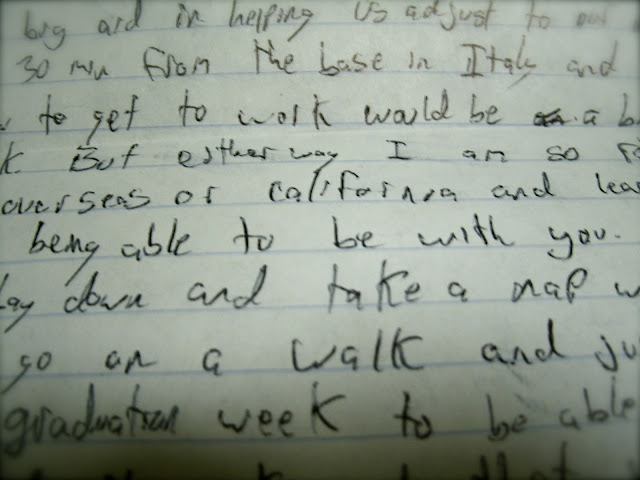 big aid in helping us adjust to our
30 min from the base in Italy and
to get to work would be a a b
k But either way I am so
overseas or california and lea
being able to be with you.
Lay down and take a nap w
go on a walk and ju
graduation week to be able